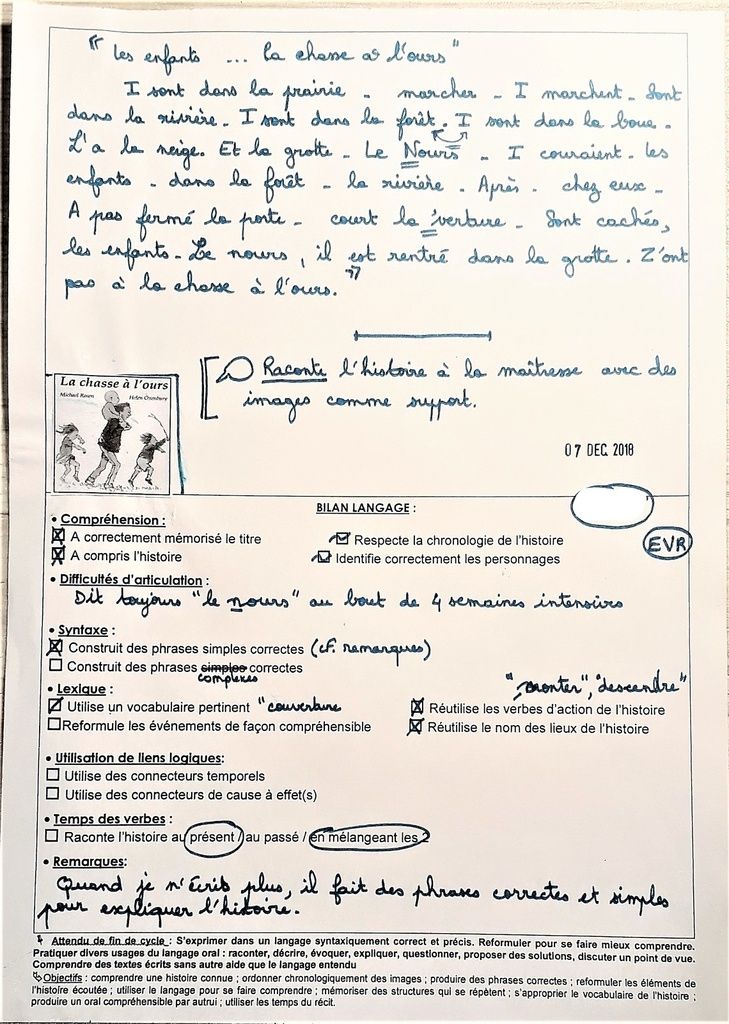 " Les enfants ... la chasse à l'ours "
I sont dans la prairie - marcher - I marchent - Sont
dans la rivière - I sont dans la forêt. I sont dans la boue -
L'a la neige. Et la grotte - Le Nours - I couraient - les
enfants - dans la forêt - la rivière - Après - chez eux -
A pas fermé la porte - court la 'verture - Sont cachés,
les enfants - Le nours, il est rentré dans la grotte. Z'ont
pas à la chasse à l'ours.
La chasse à l'ours
Michael Rosen Helen Oxenbury
Raconte l'histoire à la maîtresse avec des
images comme support.
07 DEC. 2018
BILAN LANGAGE :
• Compréhension :
A correctement mémorisé le titre
Respecte la chronologie de l'histoire
A compris l'histoire
Identifie correctement les personnages
EVR
• Difficultés d'articulation :
Dit toujours "le nours" au bout de 4 semaines intensives
• Syntaxe :
Construit des phrases simples correctes (cf. remarques)
Construit des phrases simples correctes
complexes
• Lexique :
"monter", "descendre"
Utilise un vocabulaire pertinent "couverture
Réutilise les verbes d'action de l'histoire
Reformule les événements de façon compréhensible
Réutilise le nom des lieux de l'histoire
• Utilisation de liens logiques:
Utilise des connecteurs temporels
Utilise des connecteurs de cause à effet(s)
• Temps des verbes :
Raconte l'histoire au présent / au passé / en mélangeant les 2
• Remarques:
Quand je n'écris plus, il fait des phrases correctes et simples
pour expliquer l'histoire.
Attendu de fin de cycle : S'exprimer dans un langage syntaxiquement correct et précis. Reformuler pour se faire mieux comprendre.
Pratiquer divers usages du langage oral : raconter, décrire, évoquer, expliquer, questionner, proposer des solutions, discuter un point de vue.
Comprendre des textes écrits sans autre aide que le langage entendu
Objectifs : comprendre une histoire connue ; ordonner chronologiquement des images ; produire des phrases correctes ; reformuler les éléments de
l'histoire écoutée ; utiliser le langage pour se faire comprendre ; mémoriser des structures qui se répètent ; s'approprier le vocabulaire de l'histoire ;
produire un oral compréhensible par autrui ; utiliser les temps du récit.